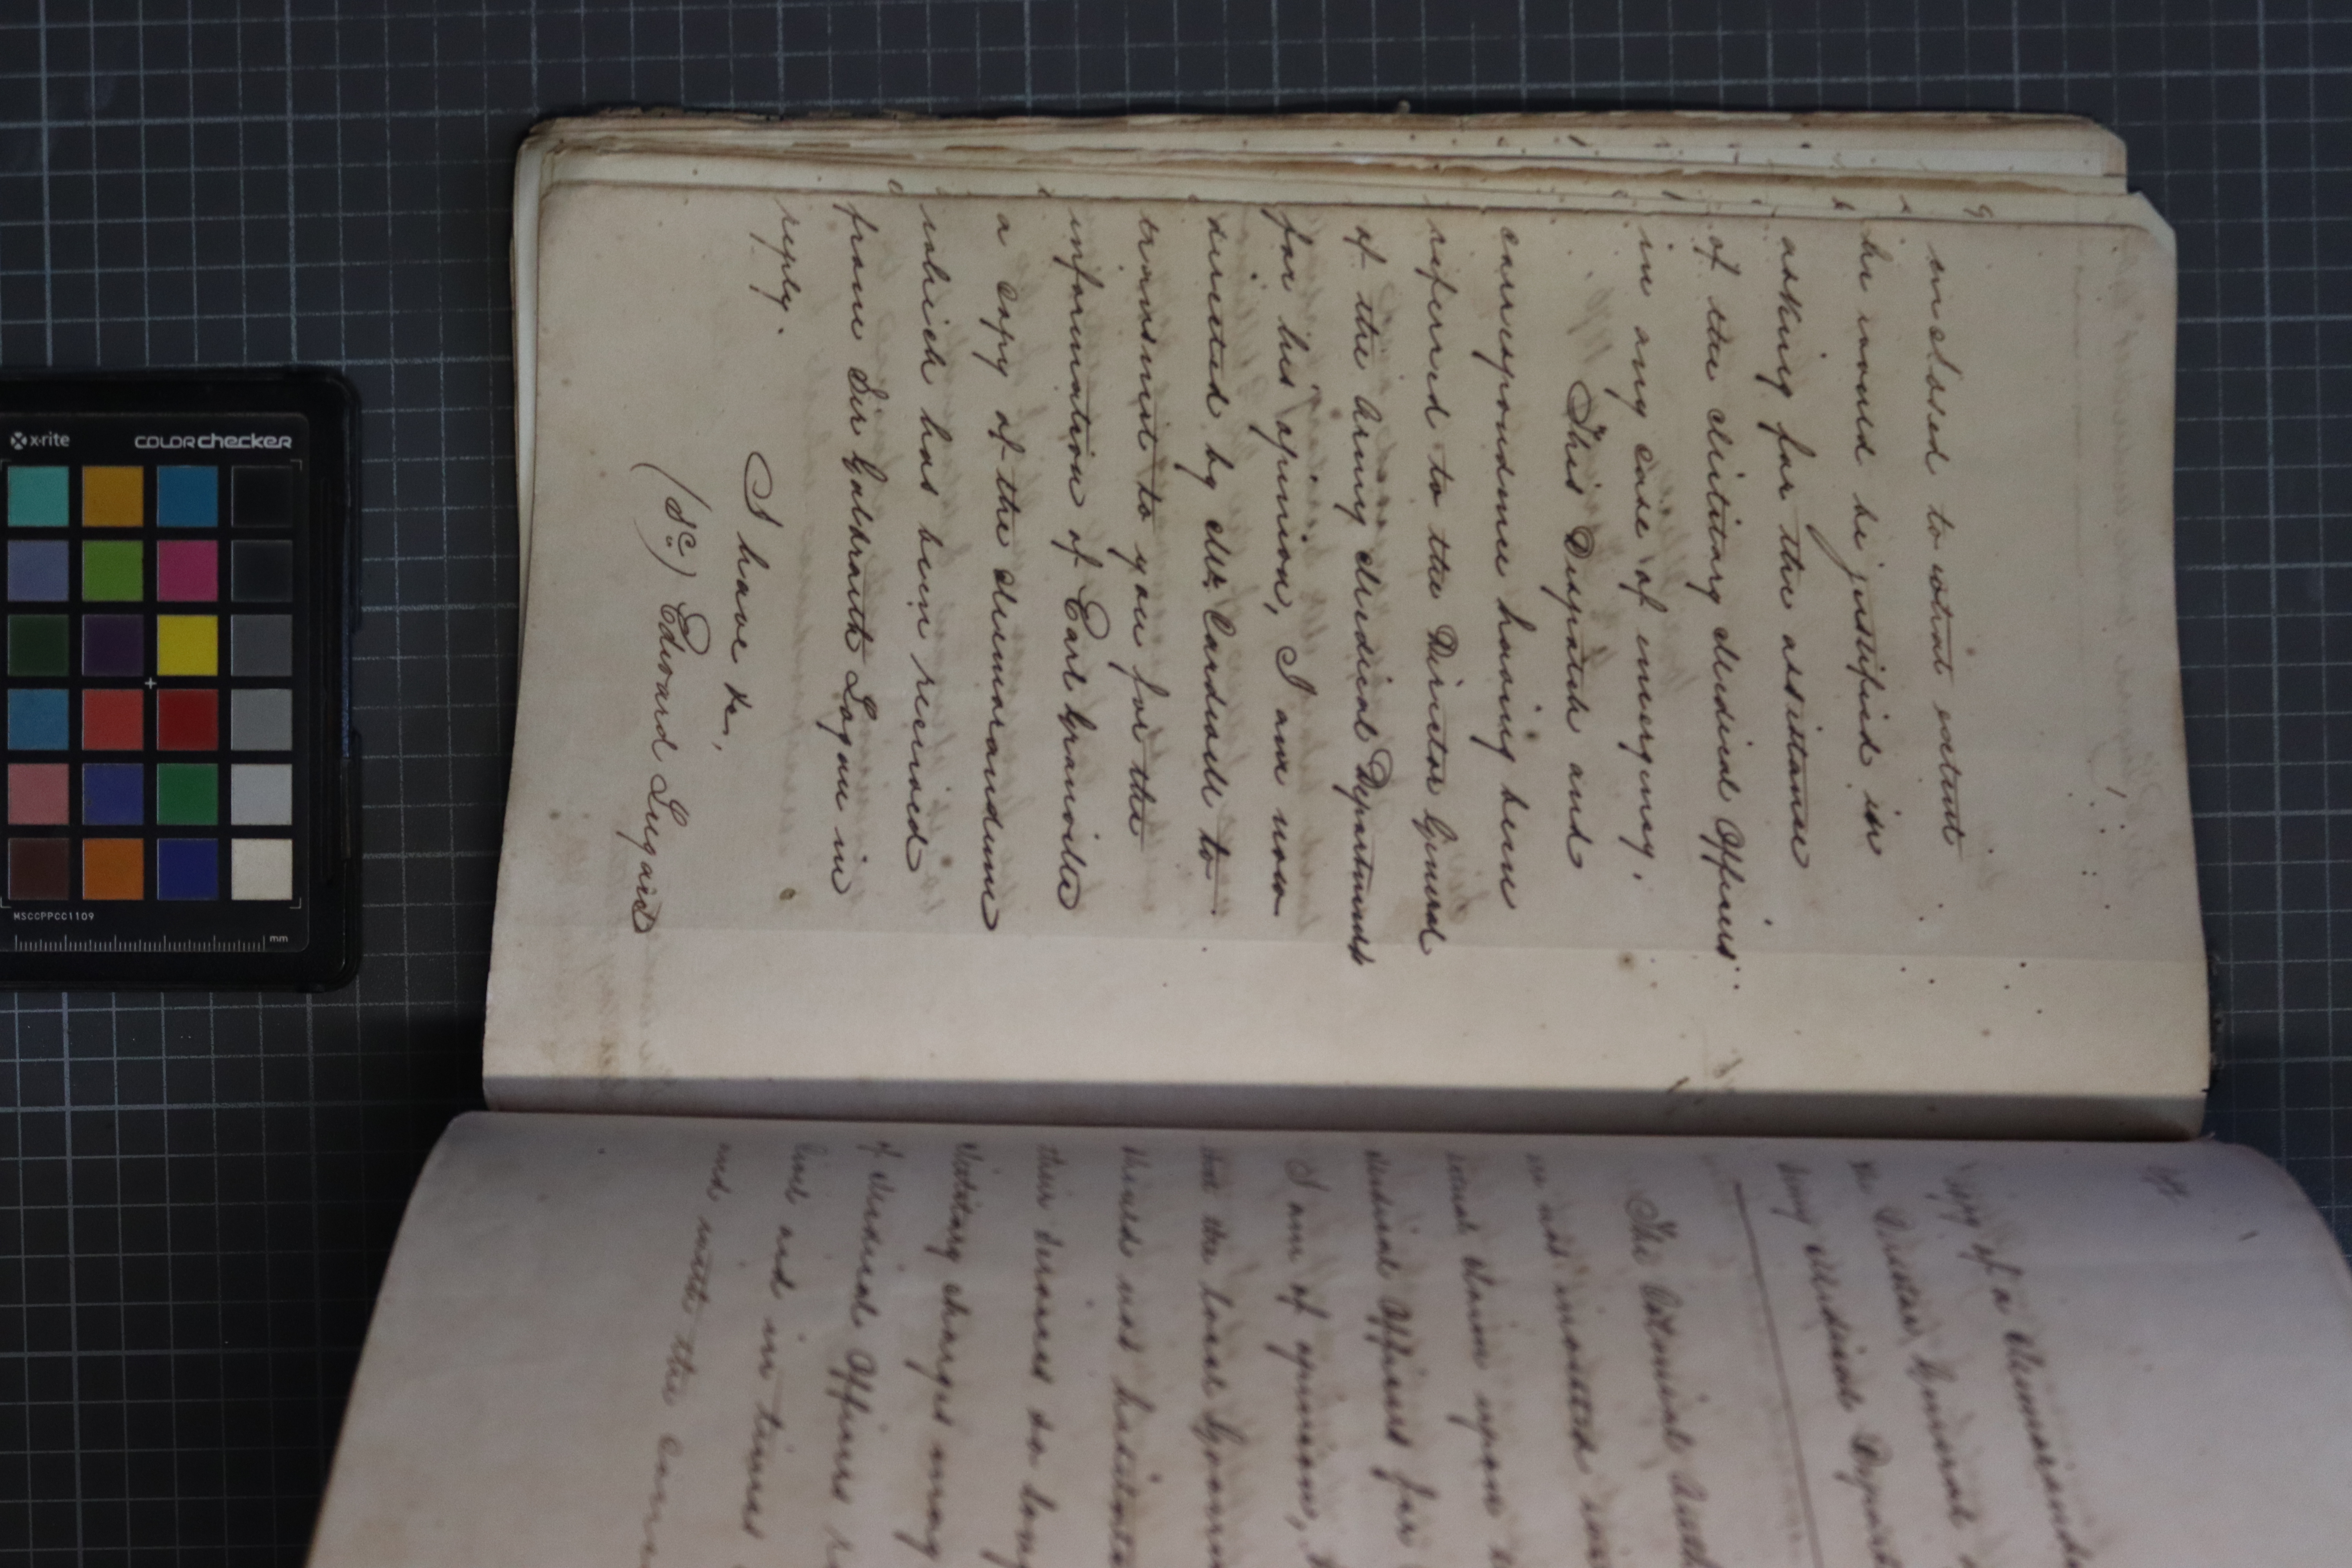 enclosed to what extent
he would be justified in
asking for the assistance
of the Military Medical Officers
in any case of emergency.
This Despatch and
correspondence having been
referred to the Director General
of the Army Medical Department
for his opinion, I am now
directed by Mr. Cardwell to
transmit to you for the
information of Earl Granville
a copy of the Memorandum
which has been received
from Sir Galbraith Logan in
reply.
I have &c,
(Sd) Edward Lugard
Copy of a Memorandu
Director General
Army Medical Depart
The Colonial
claim upon
Medical Officers for
I am of opinion,
the local Govern
their services so long
Military charges may
of Medical Officers
and in times
and with the
x-rite
COLORchecker
MSCCPPCC1109
mm